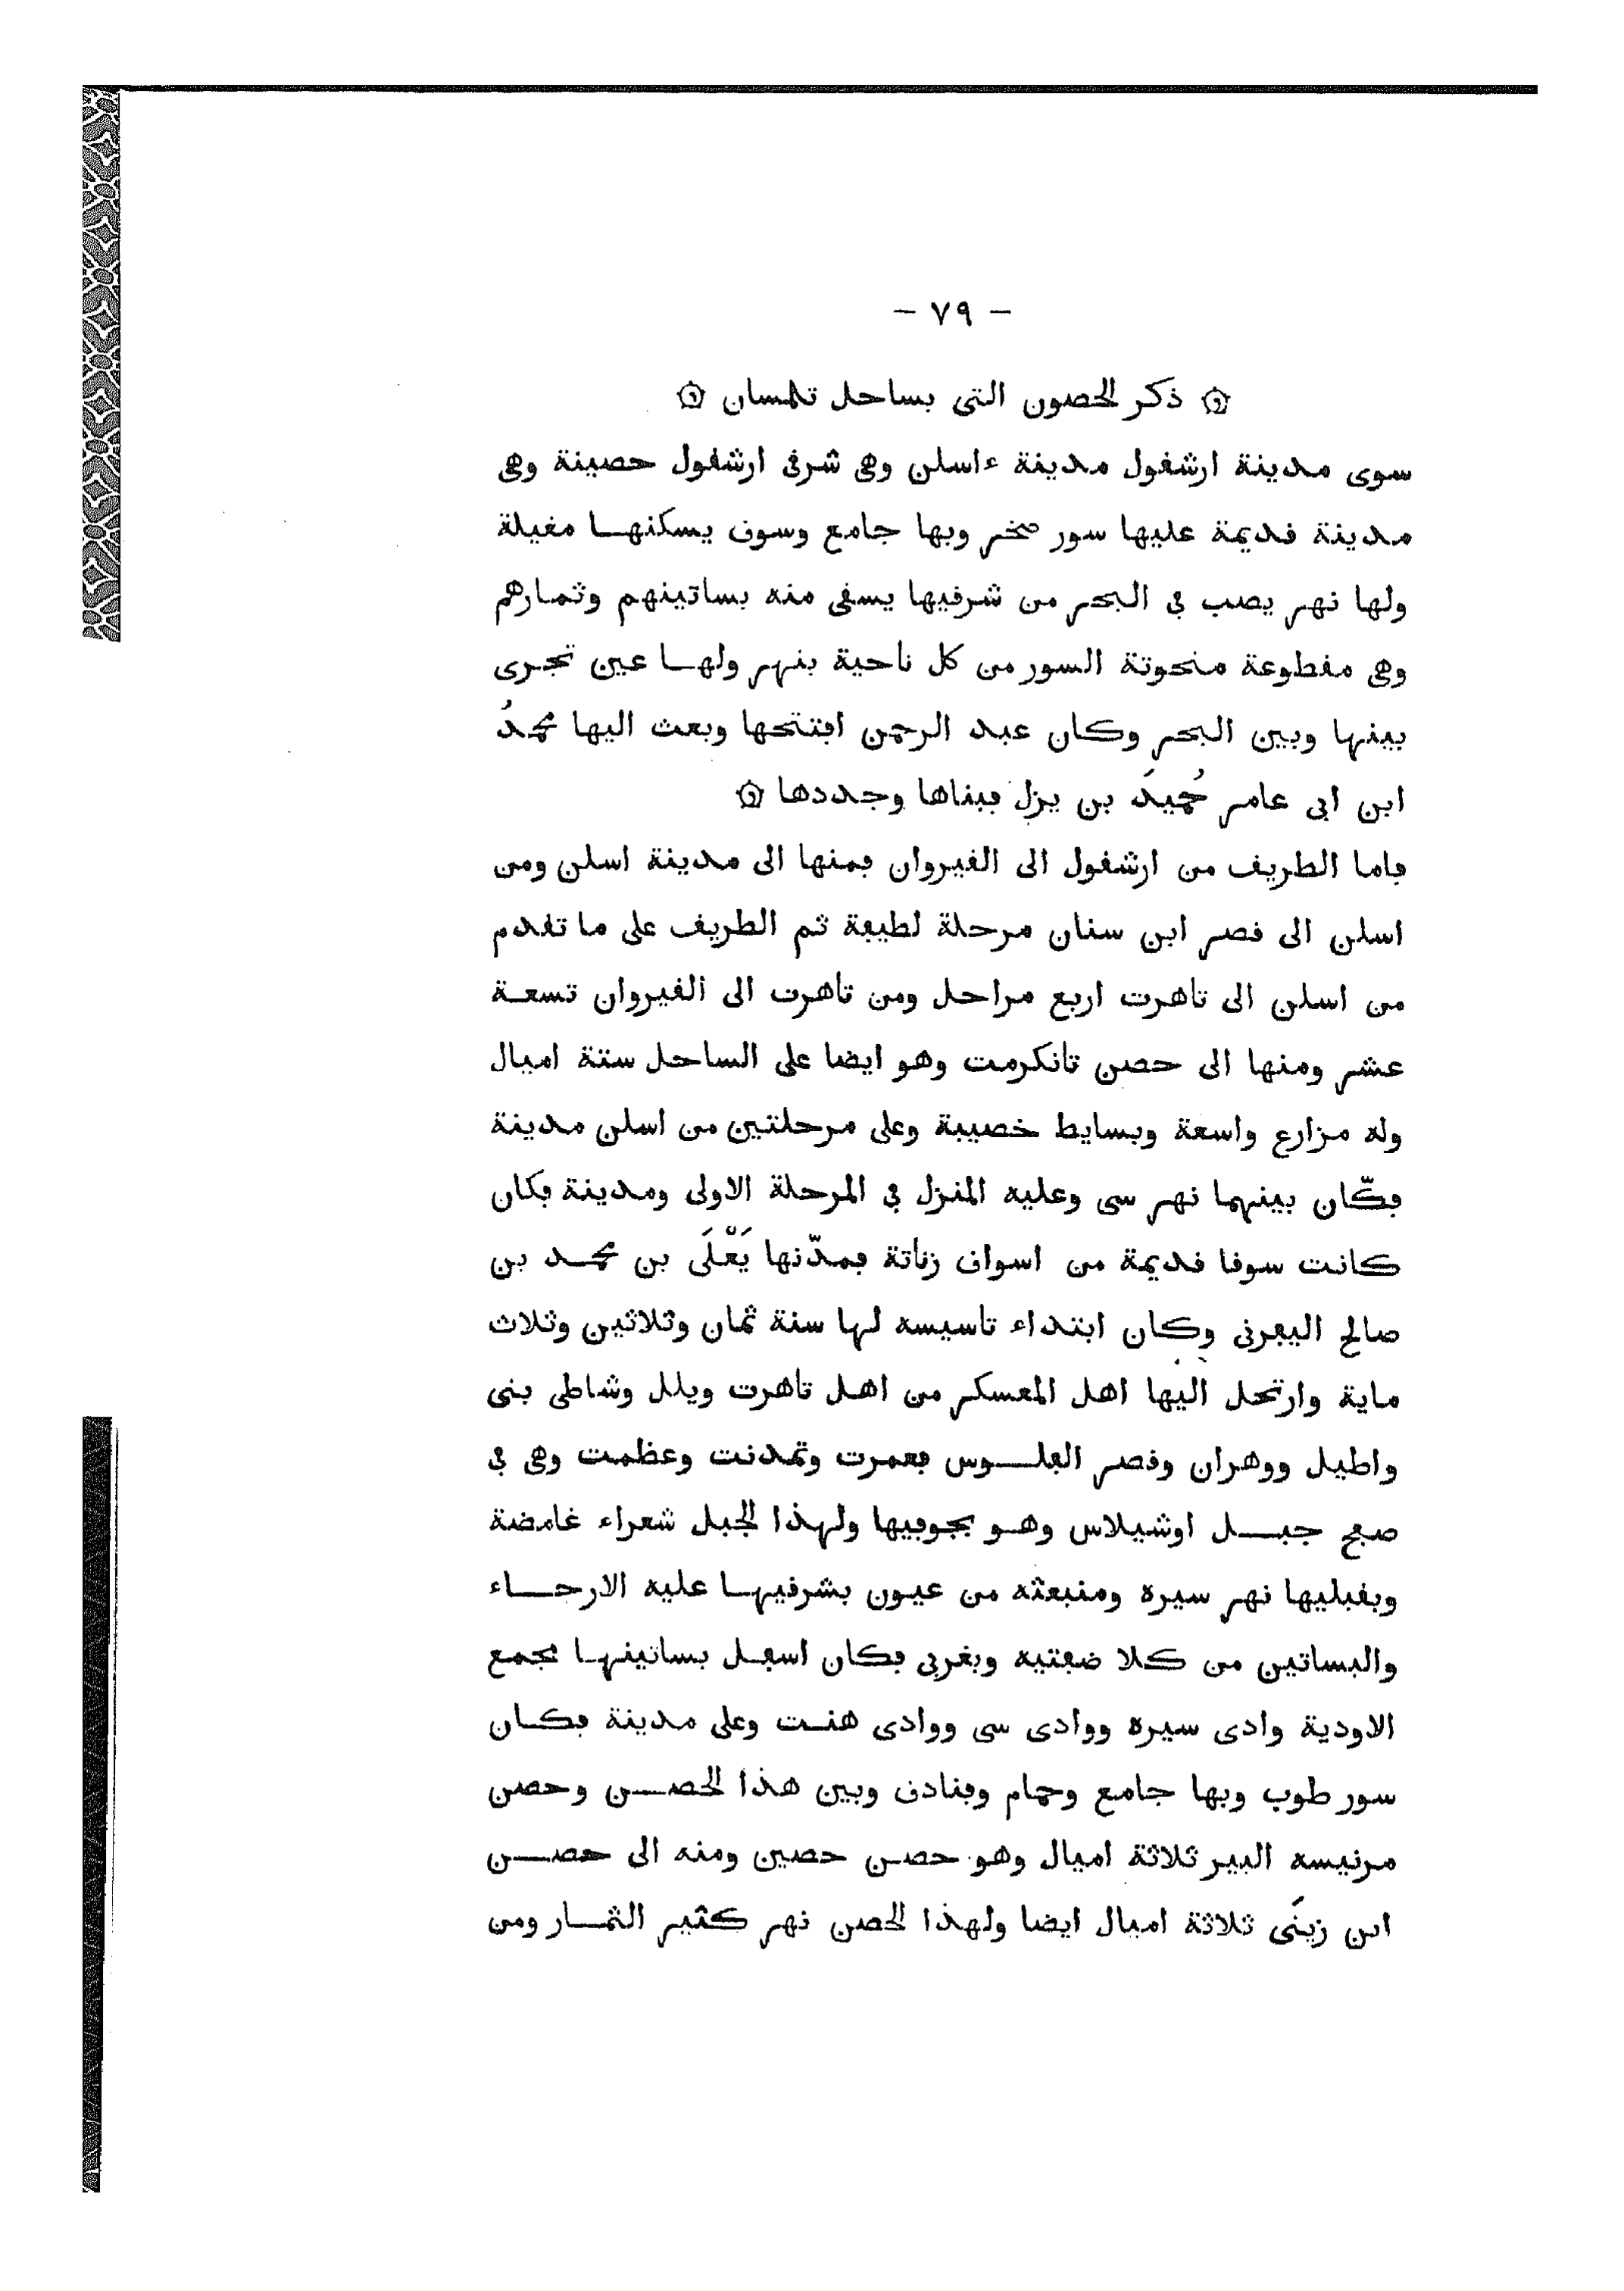 - ٧٩ -
ذكر الحصون التى بساحل تلمسان
سوى مدينة ارشقول مدينة ءاسلن وهى شرقى ارشقول حصينة وهى
مدينة قديمة عليها سور صخر وبها جامع وسوق يسكنهـا مغيلة
ولها نهر يصب فى البحر من شرقيها يسقى منه بساتينهم وثمارهم
وهى مقطوعة منحوتة السور من كل ناحية بنهر ولهـا عين تجرى
بينها وبين البحر وكان عبد الرحمن افتتحها وبعث اليها محمدُ
ابن ابى عامر حُميدَ بن يزل فبناها وجددها
فاما الطريق من ارشقول الى القيروان فمنها الى مدينة اسلن ومن
اسلن الى قصر ابن سنان مرحلة لطيفة ثم الطريق على ما تقدم
من اسلن الى تاهرت اربع مراحل ومن تاهرت الى القيروان تسعـة
عشر ومنها الى حصن تانكرمت وهو ايضا على الساحل ستة اميال
وله مزارع واسعة وبسايط خصيبة وعلى مرحلتين من اسلن مدينة
فكّان بينهما نهر سى وعليه المنزل فى المرحلة الاولى ومدينة فكان
كانت سوقا قديمة من اسواق زناتة فمدّنها يَعْلَى بن محمـد بن
صالح اليفرنى وكان ابتداء تاسيسه لها سنة ثمان وثلاثين وثلاث
ماية وارتحل اليها اهل المعسكر من اهل تاهرت ويلل وشاطى بنى
واطيل ووهران وقصر الفلـوس فعمرت وتمدنت وعظمت وهى فى
صفح جبـل اوشيلاس وهـو بجوفيها ولهذا الجبل شعراء غامضة
وبقبليها نهر سيره ومنبعثه من عيون بشرقيهـا عليه الارحـاء
والبساتين من كلا ضفتيه وبغربى فكان اسفل بساتينهـا مجمع
الاودية وادى سيره ووادى سى ووادى هنـت وعلى مدينة فكـان
سور طوب وبها جامع وحمام وفنادق وبين هذا الحصـن وحصن
مرنيسه البير ثلاثة اميال وهو حصن حصين ومنه الى حصـن
ابن زينَى ثلاثة اميال ايضا ولهذا الحصن نهر كثير الثمـار ومن